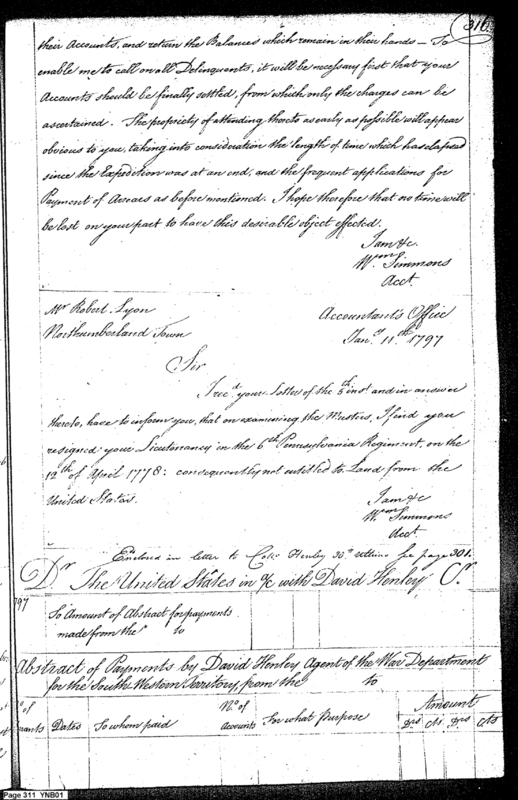 316
their Accounts, and return the Balances which remain in their hands — To
enable me to call on all Delinquents, it will be necessary first that your
Accounts should be finally settled, from which only the charges can be
ascertained. The propriety of attending thereto as early as possible will appear
obvious to you, taking into consideration the length of time which has elapsed
since the Expedition was at an end, and the frequent applications for
Payment of Arrears as before mentioned. I hope therefore that no time will
be lost on your part to have this desirable object effected.
I am &c.
Wm Simmons
Acct.
Mr Robert Lyon
Northumberland Town
Accountant's Office
Jany. 11th 1797
Sir
I recd. your Letter of the 5th inst and in answer
thereto, have to inform you, that on examining the Musters, I find you
resigned your Lieutenancy in the 6th Pennsylvania Regiment, on the
12th of April 1778: consequently not entitled to Land from the
United States.
I am &c
Wm Simmons
Acct.
Enclosed in letter to Colo. Henley 30th see page 301.
Dr The United States in a/c with David Henley Cr.
797
To Amount of Abstract for payments
made from the to
Abstract of Payments by David Henley Agent of the War Department
for the South Western Territory, from the to
No. of
Dates To whom paid
No. of
Accounts
For what Purpose
Amount
Drs Cts Drs Cts
Page 311 YNB01